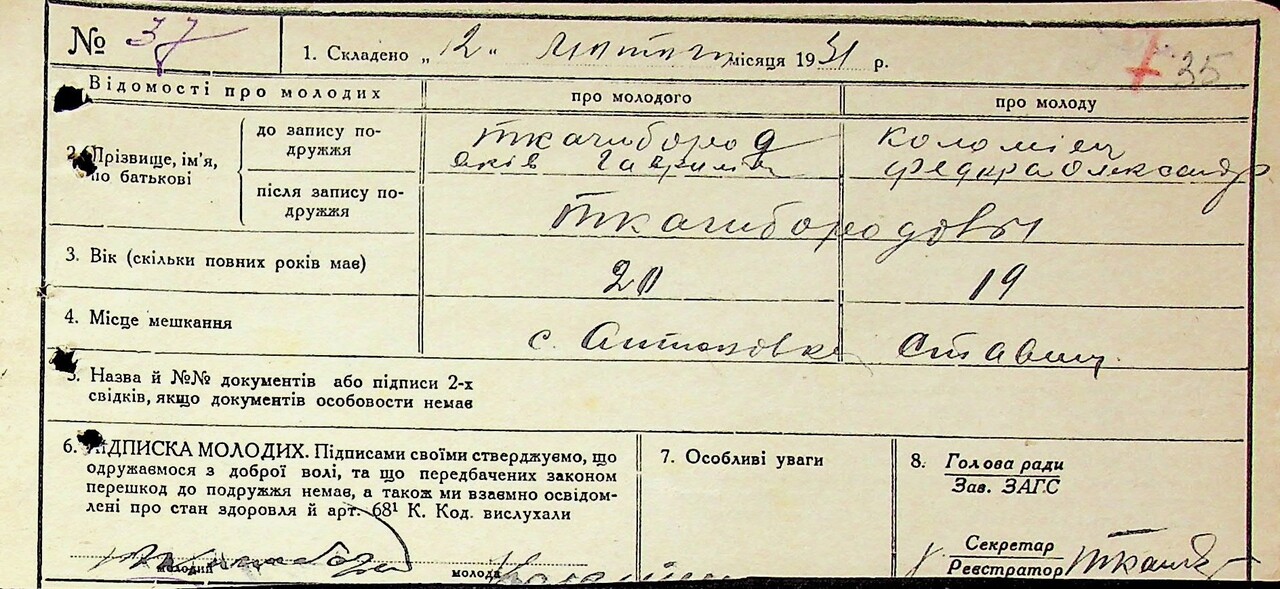 № 37
1. Складено „12“ лютого місяця 1931 р.
35
Відомості про молодих
про молодого
про молоду
2. Прізвище, ім’я, по батькові
до запису по-
дружжя
Ткачибород
Яків Гаврилов
Коломієц
Федора Олександр
після запису по-
дружжя
Ткачибородовы
3. Вік (скільки повних років має)
20
19
4. Місце мешкання
с. Антоновка Ставищ
5. Назва й №№ документів або підписи 2-х
свідків, якщо документів особовости немає
6. ПІДПИСКА МОЛОДИХ. Підписами своїми стверджуємо, що
одружаємося з доброї волі, та що передбачених законом
перешкод до подружжя немає, а також ми взаємно освідом-
лені про стан здоровля й арт. 68¹ К. Код. вислухали
молодий
молода
7. Особливі уваги
8. Голова ради
Зав. ЗАГС
Секретар
Реєстратор